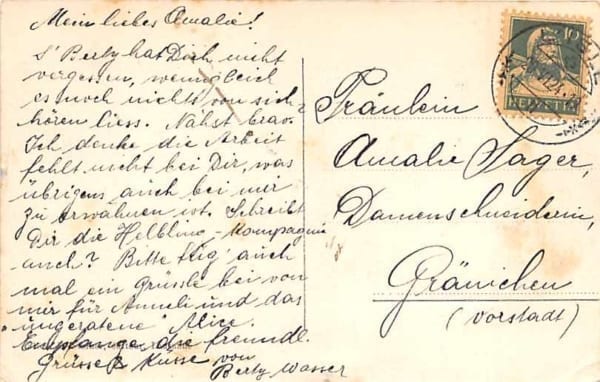 Mein liebes Amalie!
S' Berty hat Dich nicht
vergessen, wenngleich
es noch nichts von sich
hören liess. Nähst brav?
Ich denke die Arbeit
fehlt nicht bei Dir, was
übrigens auch bei mir
zu erwähnen ist. Schreibt
Dir die Helbling-Kompagnie
auch? Bitte füg' auch
mal ein Grüssle bei von
mir für Anneli und das
"ungeratene" Alice.
Empfange die freundl.
Grüsse & Küsse von
Berty Wasser
10
HELVETIA
Fräulein
Amalie Sager,
Damenschneiderin,
Gränichen
(Vorstadt)